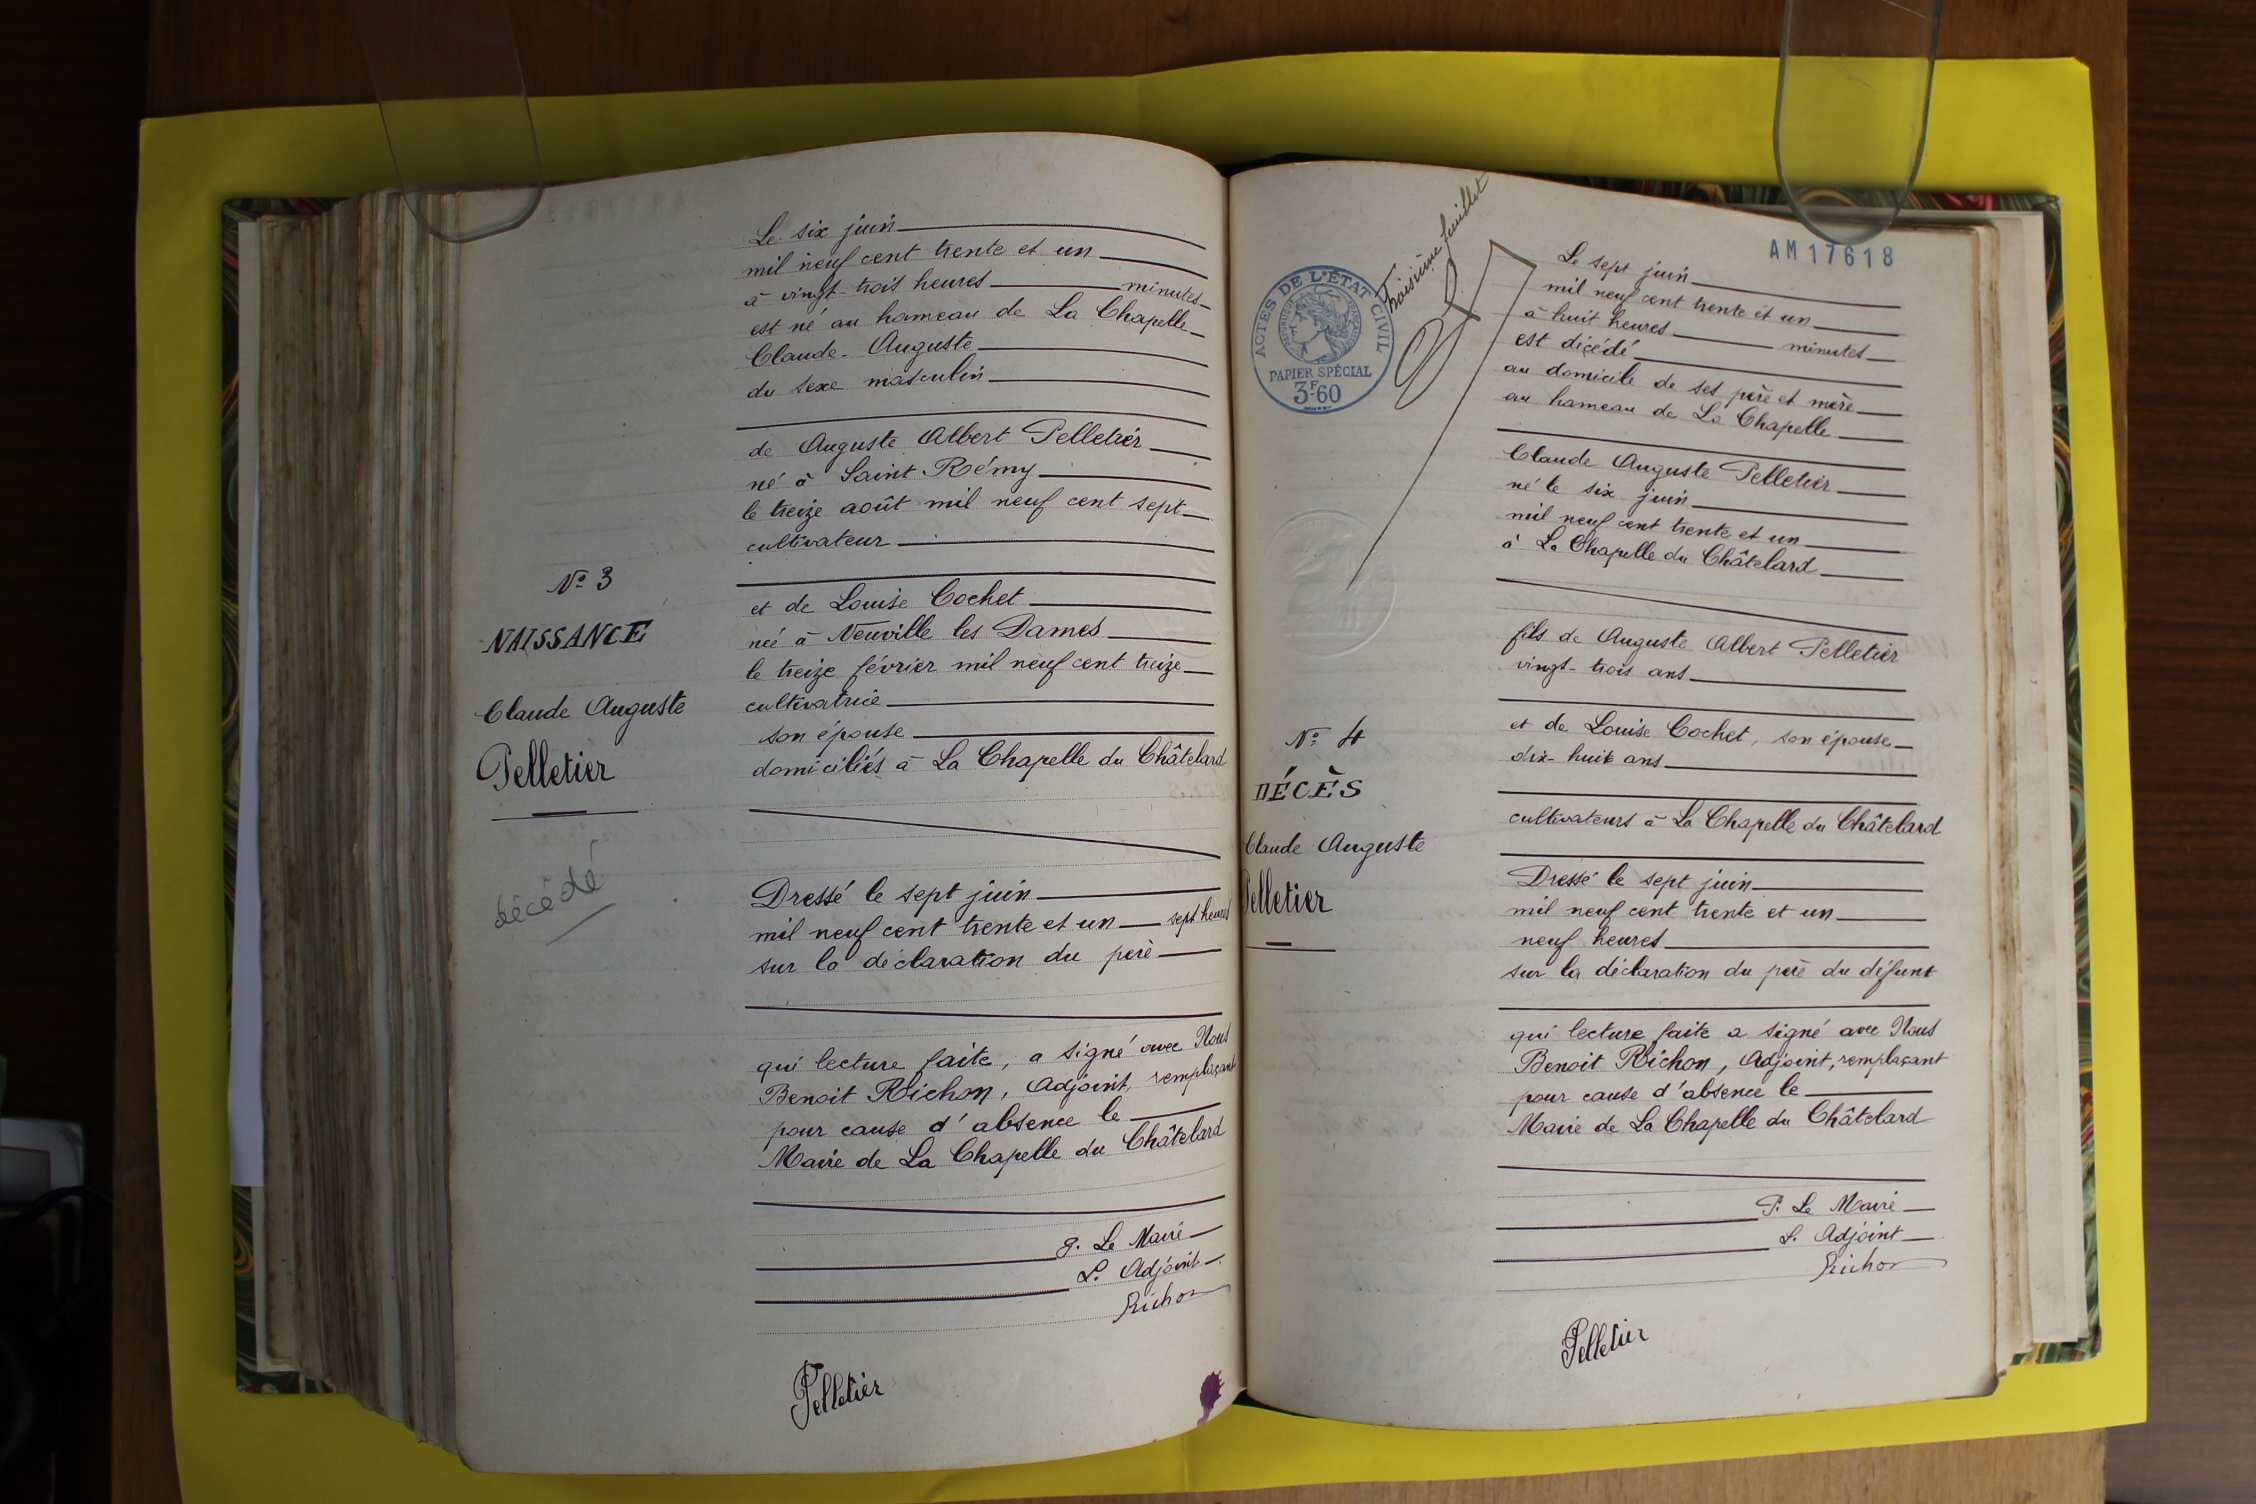 Le six juin
mil neuf cent trente et un
à vingt-trois heures minutes
est né au hameau de La Chapelle
Claude-Auguste
du sexe masculin
de Auguste Albert Pelletier
né à Saint-Rémy
le treize août mil neuf cent sept
cultivateur
et de Louise Cochet
née à Neuville les Dames
le treize février mil neuf cent treize
cultivatrice
son épouse
domiciliés à La Chapelle du Châtelard
Dressé le sept juin
mil neuf cent trente et un sept heures
sur la déclaration du père
qui lecture faite, a signé avec Nous
Benoit Richon, Adjoint, remplaçant
pour cause d'absence le
Maire de La Chapelle du Châtelard
P. Le Maire
L. Adjoint
Richon
Pelletier
No 3
NAISSANCE
Claude Auguste
Pelletier
décédé
Troisième feuillet
ACTES DE L'ÉTAT CIVIL
PAPIER SPÉCIAL
3F60
AM17618
Le sept juin
mil neuf cent trente et un
à huit heures minutes
est décédé
au domicile de ses père et mère
au hameau de La Chapelle
Claude Auguste Pelletier
né le six juin
mil neuf cent trente et un
à La Chapelle du Châtelard
fils de Auguste Albert Pelletier
vingt-trois ans
et de Louise Cochet, son épouse
dix-huit ans
cultivateurs à La Chapelle du Châtelard
Dressé le sept juin
mil neuf cent trente et un
neuf heures
sur la déclaration du père du défunt
qui lecture faite a signé avec Nous
Benoit Richon, Adjoint, remplaçant
pour cause d'absence le
Maire de La Chapelle du Châtelard
P. Le Maire
L. Adjoint
Richon
Pelletier
No 4
DÉCÈS
Claude Auguste
Pelletier